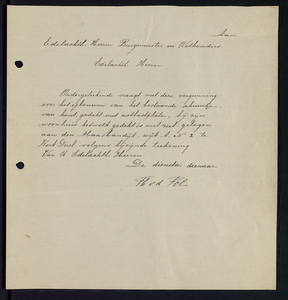 Aan
Edelachtb. Heeren Burgemeester en Wethouders
Edelachtb. Heeren
Ondergeteekend vraagt met deze vergunning
voor het opbouwen van het bestaande schuurtje
van hout, gedekt met asbestplaten, bij zijn
woonhuis hetwelk gedekt is met riet gelegen
aan den Maasbandijk, wijk A. No 2 te
Kerkdriel volgens bijzijnde teekening
Van U Edelachtb. Heeren
De dienstw. dienaar
Th v d Pol